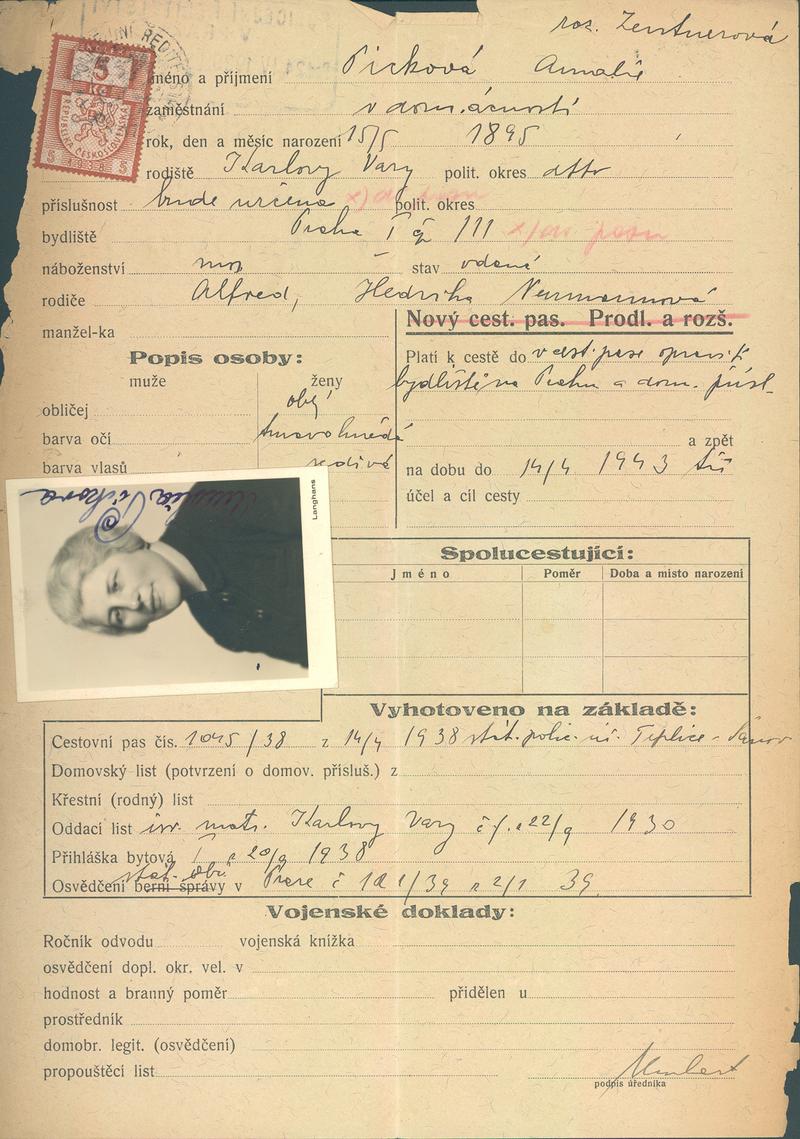 roz. Zentnerová
5
Kč
REPUBLIKA ČESKOSLOVENSKÁ
5 1938 5
jméno a příjmení Picková Annalie
zaměstnání v domácnosti
rok, den a měsíc narození 15/5 1895
rodiště Karlovy Vary polit. okres dtto
příslušnost bude určena polit. okres
bydliště Praha I čp 111 x) do pasu
náboženství moj stav vdaná
rodiče Alfred, Hedvika Neumannová
manžel-ka
Nový cest. pas. Prodl. a rozš.
Popis osoby:
muže ženy
obličej obl.
barva očí tmavohnědé
barva vlasů šedivá
Platí k cestě do v cest. pase oprav. k
bydliště na Prahu a dom. přísl.
a zpět
na dobu do 14/4 1943
účel a cíl cesty
Langhans
Picková
Spolucestující:
Jméno Poměr Doba a místo narození
Vyhotoveno na základě:
Cestovní pas čís. 1045/38 z 14/4 1938 stát. polic. úř. Teplice-Šanov
Domovský list (potvrzení o domov. přísluš.) z
Křestní (rodný) list
Oddací list izr. matr. Karlovy Vary 22/9 1930
Přihláška bytová I z 20/9 1938
Osvědčení berní správy v Praze č 101/39 z 2/1 39.
Vojenské doklady:
Ročník odvodu vojenská knížka
osvědčení dopl. okr. vel. v
hodnost a branný poměr přidělen u
prostředník
domobr. legit. (osvědčení)
propouštěcí list
podpis úředníka